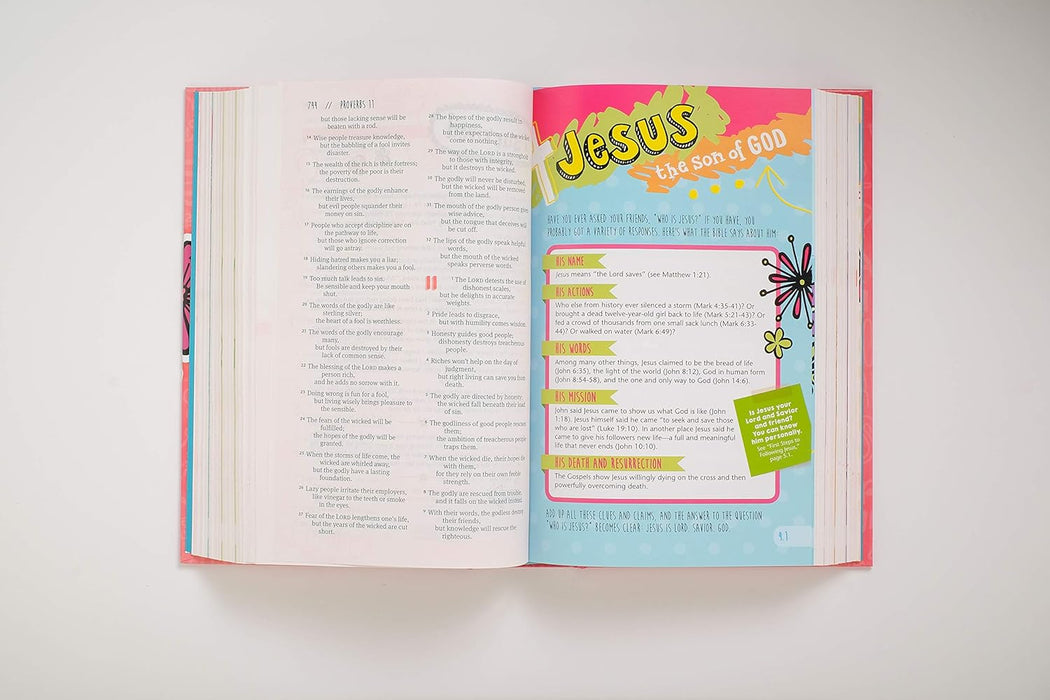 744 // PROVERBS 11
but those lacking sense will be
beaten with a rod.
14 Wise people treasure knowledge,
but the babbling of a fool invites
disaster.
15 The wealth of the rich is their fortress;
the poverty of the poor is their
destruction.
16 The earnings of the godly enhance
their lives,
but evil people squander their
money on sin.
17 People who accept discipline are on
the pathway to life,
but those who ignore correction
will go astray.
18 Hiding hatred makes you a liar;
slandering others makes you a fool.
19 Too much talk leads to sin.
Be sensible and keep your mouth
shut.
20 The words of the godly are like
sterling silver;
the heart of a fool is worthless.
21 The words of the godly encourage
many,
but fools are destroyed by their
lack of common sense.
22 The blessing of the LORD makes a
person rich,
and he adds no sorrow with it.
23 Doing wrong is fun for a fool,
but living wisely brings pleasure to
the sensible.
24 The fears of the wicked will be
fulfilled;
the hopes of the godly will be
granted.
25 When the storms of life come, the
wicked are whirled away,
but the godly have a lasting
foundation.
26 Lazy people irritate their employers,
like vinegar to the teeth or smoke
in the eyes.
27 Fear of the LORD lengthens one's life,
but the years of the wicked are cut
short.
28 The hopes of the godly result in
happiness,
but the expectations of the
come to nothing.
29 The way of the LORD is a
to those with integrity,
but it destroys the wicked.
30 The godly will never be disturbed,
but the wicked will be removed
from the land.
31 The mouth of the godly person gives
wise advice,
but the tongue that deceives will
be cut off.
32 The lips of the godly speak helpful
words,
but the mouth of the wicked
speaks perverse words.
11 1 The LORD detests the use of
dishonest scales,
but he delights in accurate
weights.
2 Pride leads to disgrace,
but with humility comes wisdom.
3 Honesty guides good people;
dishonesty destroys treacherous
people.
4 Riches won't help on the day of
judgment,
but right living can save you from
death.
5 The godly are directed by honesty;
the wicked fall beneath their load
of sin.
6 The godliness of good people rescues
them;
the ambition of treacherous people
traps them.
7 When the wicked die, their hopes die
with them,
for they rely on their own feeble
strength.
8 The godly are rescued from trouble,
and it falls on the wicked instead.
9 With their words, the godless destroy
their friends,
but knowledge will rescue the
righteous.
Jesus
the son of GOD
HAVE YOU EVER ASKED YOUR FRIENDS, "WHO IS JESUS?" IF YOU HAVE, YOU
PROBABLY GOT A VARIETY OF RESPONSES. HERE'S WHAT THE BIBLE SAYS ABOUT HIM:
HIS NAME
Jesus means "the Lord saves" (see Matthew 1:21).
HIS ACTIONS
Who else from history ever silenced a storm (Mark 4:35-41)? Or
brought a dead twelve-year-old girl back to life (Mark 5:21-43)? Or
fed a crowd of thousands from one small sack lunch (Mark 6:33-
44)? Or walked on water (Mark 6:49)?
HIS WORDS
Among many other things, Jesus claimed to be the bread of life
(John 6:35), the light of the world (John 8:12), God in human form
(John 8:54-58), and the one and only way to God (John 14:6).
HIS MISSION
John said Jesus came to show us what God is like (John
1:18). Jesus himself said he came "to seek and save those
who are lost" (Luke 19:10). In another place Jesus said he
came to give his followers new life—a full and meaningful
life that never ends (John 10:10).
HIS DEATH AND RESURRECTION
The Gospels show Jesus willingly dying on the cross and then
powerfully overcoming death.
Is Jesus your
Lord and Savior
and friend?
You can know
him personally.
See "First Steps to
Following Jesus,"
page S.1.
ADD UP ALL THESE CLUES AND CLAIMS, AND THE ANSWER TO THE QUESTION
"WHO IS JESUS?" BECOMES CLEAR: JESUS IS LORD. SAVIOR. GOD.
9.1